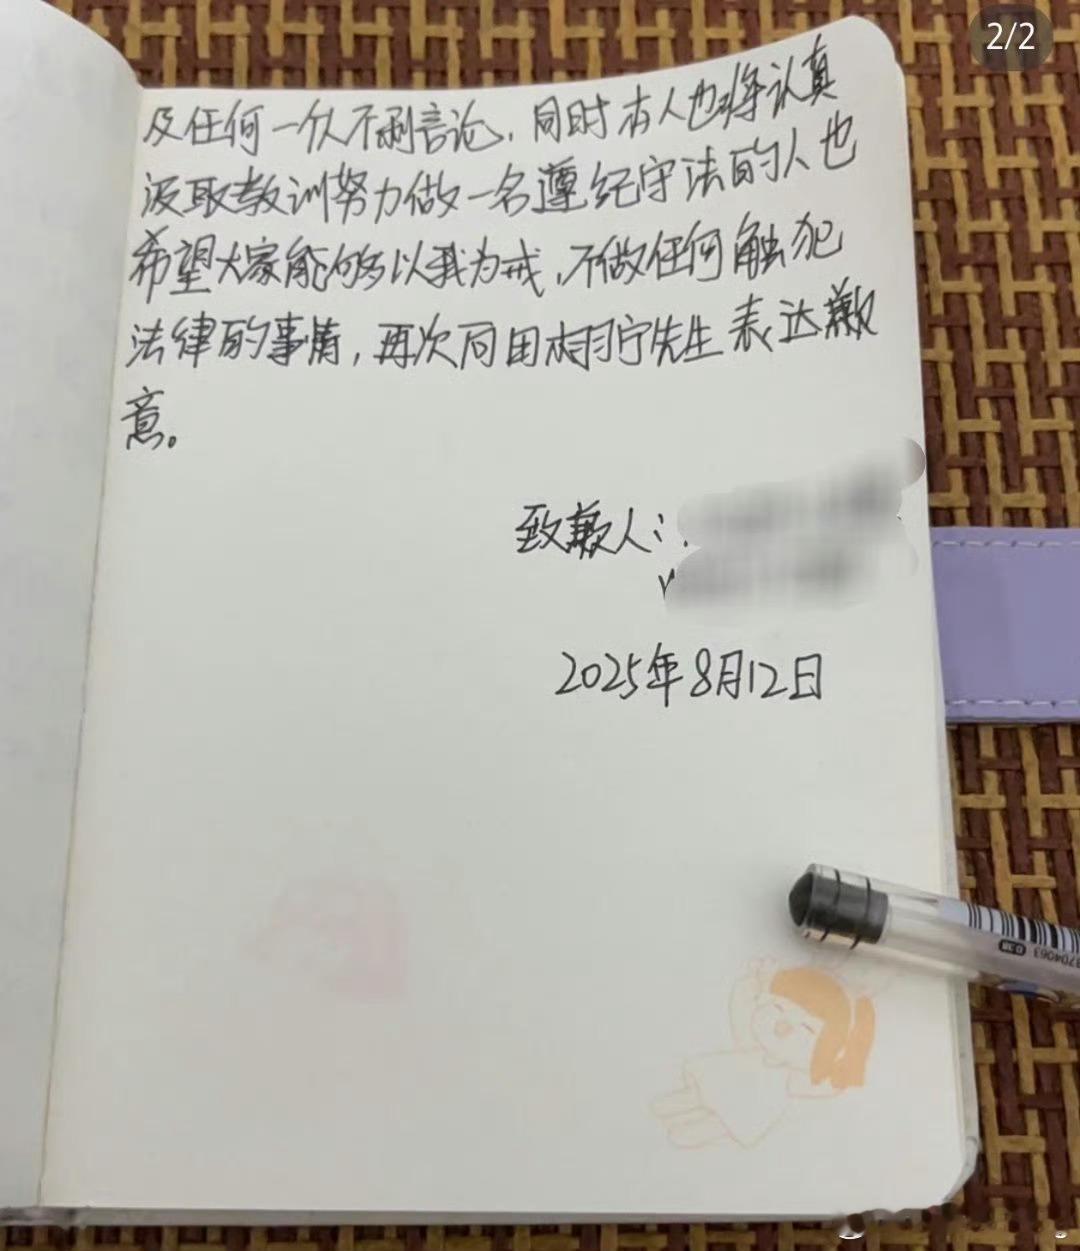 2/2
及任何一个人不利言论，同时本人也将认真
汲取教训努力做一名遵纪守法的人也
希望大家能够以我为戒，不做任何触犯
法律的事情，再次向田栩宁先生表达歉
意。
致歉人：
2025年8月12日
0.38
3704063